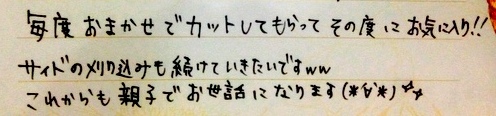 毎度 おまかせで カットしてもらって その度に お気に入り!!
サイドの刈り込みも 続けていきたいですww
これからも 親子で お世話になります(*´∀`*)